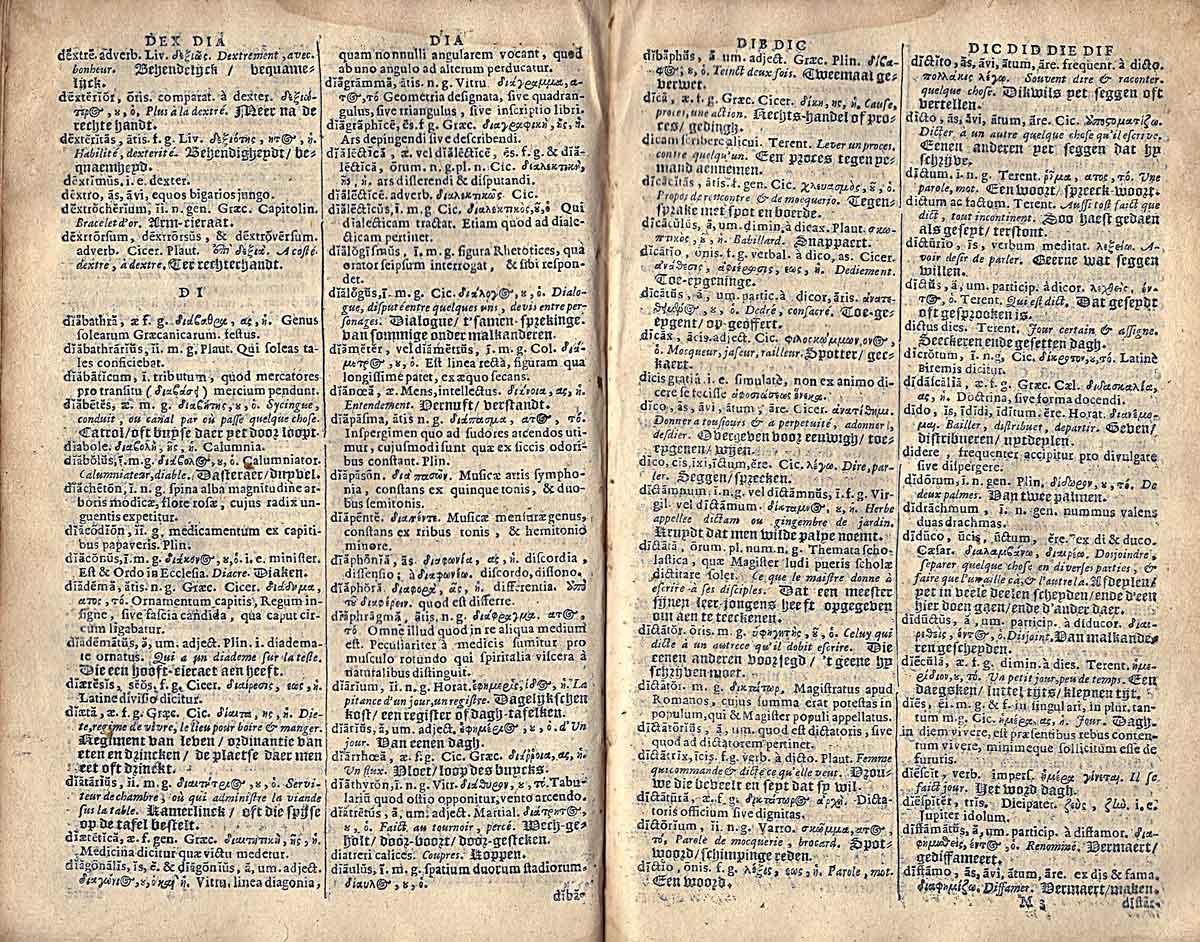 DEX DIA
dextrè. adverb. Liv. δεξιῶς. Dextrement, avec
bonheur. Behendelijck / bequame-
lijck.
dextĕrĭŏr, ŏris. comparat. à dexter. δεξιό-
τερος, ȣ, ὁ. Plus à la dextre. Meer na de
rechte handt.
dextĕrĭtās, ātis. f. g. Liv. δεξιότης, ητος, ἡ.
Habilité, dexterité. Behendigheydt / be-
quaemheyd.
dextĭmus, i. e. dexter.
dextro, ās, āvi, equos bigarios jungo.
dextrŏchērĭum, ii. n. gen. Græc. Capitolin.
Bracelet d'or. Arm-cieraat.
dextrorsŭm, dextrorsŭs, & dextrōversŭm.
adverb. Cicer. Plaut. A costé
dextre, à dextre. Ter rechterhandt.
DI
dĭăbathră, æ f. g. διάβαθρα, ας, ἡ. Genus
solearum Græcanicarum. festus.
dĭăbathrārĭus, ii. m. g. Plaut. Qui soleas ta-
les conficiebat.
dĭăbătĭcum, i. tributum, quod mercatores
pro transitu (διαβάσει) mercium pendunt.
dĭăbētēs, æ. m. g. διαβήτης, ȣ, ὁ. Sycingue,
conduit, ou canal par où passe quelque chose.
Catrol / oft buyse daer yet door loopt.
diabole. διαβολὴ, ῆς, ἡ. Calumnia.
dĭăbŏlŭs, i. m. g. διάβολος, ȣ, ὁ. Calumniator.
Calumniateur, diable. Lasteraer / duyvel.
dĭăchĕtŏn, i. n. g. spina alba magnitudine ar-
boris modicæ, flore rosæ, cujus radix un-
guentis expetitur.
dĭăcŏdĭŏn, ii. g, medicamentum ex capiti-
bus papaveris. Plin.
dĭăcŏnŭs, i. m. g. διάκονος, ȣ, ὁ. i. e. minister.
Est & Ordo in Ecclesia. Diacre. Diaken.
dĭădēmă, ătis. n. g. Græc. Cicer. διάδημα,
ατος, τό. Ornamentum capitis, Regum in-
signe, sive fascia candida, qua caput cir-
cum ligabatur.
dĭădēmātŭs, ă, um. adject. Plin. i. diadema-
te ornatus. Qui a un diademe sur la teste.
Die een hooft-cieraet aen heeft.
dĭærĕsĭs, sĕŏs, f. g. Cicer. διαίρεσις, εως, ἡ.
Latine divisio dicitur.
dĭætă, æ. f. g. Græc. Cic. δίαιτα, ης, ἡ. Die-
te, regime de vivre, le lieu pour boire & manger.
Regiment van leven / ordinantie van
eten en drincken / de plaetse daer men
eet oft drinckt.
dĭætārĭŭs, ii. m. g. ȣ, ὁ. Servi-
teur de chambre, ou qui administre la viande
sus la table. Kamerlinck / oft die spijse
op de tafel bestelt.
dĭætētĭcă, æ. f. gen. Græc. διαιτητικὴ, ῆς, ἡ.
Medicina dicitur quæ victu medetur.
dĭăgōnālĭs, is, ĕ. & dĭăgōnĭus, ă, um. adject.
διαγώνιος, ȣ, ὁ καὶ ἡ. Vitru. linea diagonia,
DIA
quam nonnulli angularem vocant, quod
ab uno angulo ad alterum perducatur.
dĭāgrammă, ătis. n. g. Vitru. διάγραμμα, α-
τος, τό Geometria designata, sive quadran-
gulus, sive triangulus, sive inscriptio libri.
dĭāgrăphĭcē, ēs. f. g. Græc. διαγραφικὴ, ῆς, ἡ.
Ars depingendi sive describendi.
dĭălectĭcă, æ vel dĭălectĭcē, ēs. f. g. & dĭă-
lectĭcă, ōrum. n. g. pl. n. Cic. διαλεκτικὴ,
ῆς, ἡ. ars disserendi & disputandi.
dĭălectĭcē. adverb. διαλεκτικῶς. Cic.
dĭălectĭcŭs, i. m. g Cic. διαλεκτικὸς, ȣ, ὁ Qui
dialecticam tractat. Etiam quod ad diale-
cticam pertinet.
dĭălŏgismŭs, i. m. g. figura Rhetorices, quâ
orator seipsum interrogat, & sibi respon-
det.
dĭălŏgŭs, i. m. g. Cic. διάλογος, ȣ, ὁ. Dialo-
gue, dispute entre quelques uns, devis entre per-
sonages. Dialogue / t'samen-sprekinge
van sommige onder malkanderen.
dĭămĕtĕr, vel dĭămĕtrŭs, i. m. g. Col. διά-
μετρος, ȣ, ὁ. Est linea rectà, figuram qua
longissime patet, ex æquo secans.
dĭănœă, æ. Mens, intellectus. διάνοια, ας, ἡ.
Entendement. Vernuft / verstandt.
dĭăpasma, ătis n. g. διάπασμα, ατος, τό.
Inspergimen quo ad sudores arcendos uti-
mur, cujusmodi sunt quæ ex siccis odori-
bus constant. Plin.
dĭăpāsōn. διὰ πασῶν. Musicæ artis sympho-
nia, constans ex quinque tonis, & duo-
bus semitonis.
dĭăpentĕ. διαπέντε. Musicæ mensuræ genus,
constans ex tribus tonis, & hemitonio
minore.
dĭăphōnĭă, ās. διαφωνία, ας, ἡ. discordia,
dissensio; à διαφωνέω. discordo, dissono.
dĭăphŏră. διαφορὰ, ᾶς, ἡ. differentia. ἀπὸ
τοῦ διαφέρειν. quod est differre.
dĭăphragmă, ătis. n. g. διάφραγμα. ατος,
τό. Omne illud quod in re aliqua medium
est. Peculiariter à medicis sumitur pro
musculo rotundo qui spiritalia viscera à
naturalibus distinguit.
dĭārĭum, ii. n. g. Horat. ἐφημερὶς, ίδος, ἡ. La
pitance d'un jour, un registre. Dagelijckschen
kost / een register of dagh-tafelken.
dĭārĭŭs, ă, um. adject. ἐφημέριος, ȣ, ὁ. d'Un
jour. Van eenen dagh.
dĭarrhœă, æ. f. g. Cic. διάῤῥοια, ας, ἡ.
Un flux. Vloet / loop des buycks.
dĭăthȳrŏn, i. n. g. Vitr. διάθυρον, ȣ, τό. Tabu-
larium quod ostio opponitur, vento arcendo.
dĭătrētŭs, ă, um. adject. Martial. διάτρητος,
ȣ, ὁ. Faict au tournoir, percé. Wech-ge-
holt / door-boort / door-gesteken.
diatreti calices. Coupes. Koppen.
dĭaulŭs, i. m. g. spatium duorum stadiorum.
δίαυλος, ȣ, ὁ.
dĭbā-
DIB DIC
dĭbăphŭs, ă um. adject. Græc. Plin. δίβα-
φος, ȣ, ὁ. Teinct deux fois. Tweemael ge-
verwet.
dĭcă, æ. f. g. Græc. Cicer. δίκη, ης, ἡ. Cause,
proces, une action. Rechts-handel of pro-
ces / gedingh.
dicam scribere alicui. Terent. Lever un proces,
contre quelqu'un. Een proces tegen ye-
mand aennemen.
dĭcācĭtās, ātis. f. gen. Cic. χλευασμὸς, ȣ, ὁ.
Propos de rencontre & de mocquerie. Tegen-
sprake met spot en boerde.
dĭcācŭlŭs, ă, um. dimin. à dicax. Plaut. σκω-
πτικὸς, ȣ, ὁ. Babillard. Snappaert.
dĭcātĭo, ōnis. f. g. verbal. à dico, as. Cicer.
ἀνάθεσις, ἀφιέρωσις, εως, ἡ. Dediement.
Toe-eygeninge.
dĭcātŭs, ă, um. partic. à dicor, āris.
ȣ, ὁ. Dedré, consacré. Toe-ge-
eygent / op-geoffert.
dĭcāx, ācis. adject. Cic. φιλοσκώμμων, ονος,
ὁ. Mocqueur, jaseur, railleur. Spotter / gec-
kaert.
dicis gratiâ. i. e. simulatè, non ex animo di-
cere se tecisse. ἀφοσιώσεως ἕνεκα.
dĭco, ās, āvi, ātum, āre. Cicer. ἀνατίθημι.
Donner a tousjours & a perpetuité, adonner,
dedier. Overgeven voor eeuwigh / toe-
eygenen / wijen.
dīco, cis, ixi, ictum, ĕre. Cic. λέγω. Dire, par-
ler. Seggen / spreecken.
dictamnum, i. n. g. vel dictamnŭs, i. f. g. Vir-
gil. vel dictămum. δίκταμνος, ȣ, ὁ. Herbe
appellee dictam ou gingembre de jardin.
Kruydt dat men wilde palye noemt.
dictātă, ōrum. pl. num. n. g. Themata scho-
lastica, quæ Magister ludi pueris scholæ
dictitare solet. Ce que le maistre donne à
escrire à ses disciples. Dat een meester
sijnen leer-jongens heeft opgegeven
om aen te teeckenen.
dictātŏr. ōris. m. g. ὑφηγητὴς, ȣ, ὁ. Celuy qui
dicte à un autre ce qu'il doibt escrire. Die
eenen anderen voorsegd / 't geene hy
schrijven moet.
dictātŏr. m. g. δικτάτωρ. Magistratus apud
Romanos, cujus summa erat potestas in
populum, qui & Magister populi appellatus.
dictātōrĭŭs, ă, um. quod est dictatoris, sive
quod ad dictatorem pertinet.
dictātrīx, icis. f. g. verb. à dicto. Plaut. Femme
qui commande & dicte ce qu'elle veut. Vrou-
we die beveelt en seyt dat sy wil.
dictātūră, æ. f. g. δικτάτορος ἀρχή. Dicta-
toris officium sive dignitas.
dictērĭum, ii. n. g. Varro. σκῶμμα, ατος,
τό. Parole de mocquerie, brocard. Spot-
woord / schimpinge reden.
dictĭo, ōnis. f. g. λέξις, εως, ἡ. Parole, mot.
Een woord.
DIC DID DIE DIF
dictĭto, ās, āvi, ātum, āre. frequent. à dicto.
πολλάκις λέγω. Souvent dire & raconter
quelque chose. Dikwils yet seggen oft
vertellen.
dicto, ās, āvi, ātum, āre. Cic. ὑποστοματίζω.
Dicter à un autre quelque chose qu'il escrive.
Eenen anderen yet seggen dat hy
schrijve.
dictum, i. n. g. Terent. ῥῆμα, ατος, τό. Une
parole, mot. Een woort / spreeck-woort.
dictum ac factum. Terent. Aussi tost faict que
dict, tout incontinent. Soo haest gedaen
als geseyt / terstont.
dictŭrĭo, īs, verbum meditat. λεξείω. A-
voir desir de parler. Geerne wat seggen
willen.
dictŭs, ă, um. particip. à dicor. λεχθεὶς, έν-
τος, ὁ. Terent. Qui est dict. Dat geseydt
oft gesproocken is.
dictus dies. Terent. Jour certain & assigné.
Seeckeren ende gesetten dagh.
dicrŏtum, i. n. g, Cic. δίκροτον, ȣ, τό. Latinè
Biremis dicitur.
dĭdascălĭă, æ. f. g. Græc. Cæl. διδασκαλία,
ας, ἡ. Doctrina, sive forma docendi.
dĭdo, is, dĭdĭdi, dĭdĭtum, ĕre. Horat. διανέμο-
μαι. Bailler, distribuer, departir. Geven /
distribueren / uytdeylen.
didere, frequenter accipitur pro divulgate
sive dispergere.
dĭdōrum, i. n. gen. Plin. δίδωρον, ȣ, τό. De
deux palmes. Van twee palmen.
dĭdrachmum, i. n. gen. nummus valens
duas drachmas.
dĭdūco, ūcis, ūctum, ĕre. ex di & duco.
Cæsar. διαλαμβάνω, διαιρέω. Dejoindre,
separer quelque chose en diverses parties, &
faire que l'un aille ça, & l'autre la. Afdeylen /
yet in veele deelen scheyden / ende d'een
hier doen gaen / ende d'ander daer.
dĭductŭs, ă, um. particip. à diducor. διαι-
ρεθεὶς, έντος, ὁ. Disjoint. Van malkande-
ren gescheyden.
dĭēcŭlă, æ. f. g. dimin. à dies. Terent. ἡμε-
ρίδιον, ȣ, τό. Un petit jour, peu de temps. Een
daegsken / luttel tijts / kleynen tijt.
dĭēs, ēi. m. g. & f. in singulari, in plur. tan-
tum m. g. Cic. ἡμέρα, ας, ἡ. Jour. Dagh.
in diem vivere, est præsentibus rebus conten-
tum vivere, minimeque sollicitum esse de
futuris.
dĭescĭt, verb. impers. ἡμέρα γίνεται. Il se
faict jour. Het word dagh.
dĭespĭtĕr, tris. Dieipater. ζεὺς, ζηνὸς. i. e.
Jupiter idolum.
diffāmātŭs, ă, um. particip. à diffamor. δια-
φημισθεὶς, έντος, ὁ. Renommé. Vermaert /
gediffameert.
diffāmo, ās, āvi, ātum, āre. ex dis & fama.
διαφημίζω. Diffamer. Vermaert / maken.
M 3
diffār-